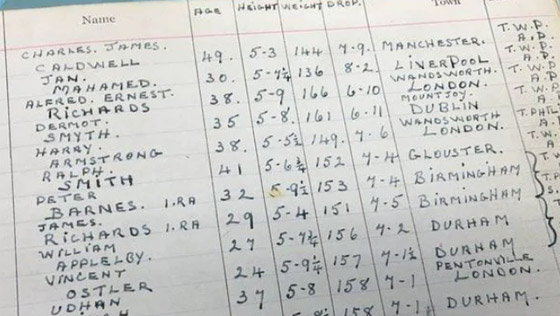 Name AGE HEIGHT WEIGHT DROP. Town
CHARLES. JAMES. T.W.P.
CALDWELL 49. 5-3 144 7-9. MANCHESTER. A.P.
JAN. T.W.P.
MAHAMED. 30. 136 8-2. LIVERPOOL A.P.
ALFRED. ERNEST. WANDSWORTH. T.W.P.
RICHARDS 38. 5-9 166 6-10 LONDON. A.P.
DERMOT. MOUNTJOY.
SMYTH. 35 5-8. 161 6-11 DUBLIN
HARRY. WANDSWORTH
ARMSTRONG 38. 5-5½ 149. 7-6 LONDON.
RALPH.
SMITH 41 152 7-4 GLOUSTER.
PETER
BARNES. I.RA 32 5-9½ 153 7-4 BIRMINGHAM
JAMES.
RICHARDS I.RA 29 5-4 151 7-5 BIRMINGHAM
WILLIAM
APPLELBY. 27 156 7-2 DURHAM
VINCENT
OSTLER 24 157 7-1½ DURHAM
UDHAN 37 5-8 158 7-1 PENTONVILLE
LONDON.
158 DURHAM.